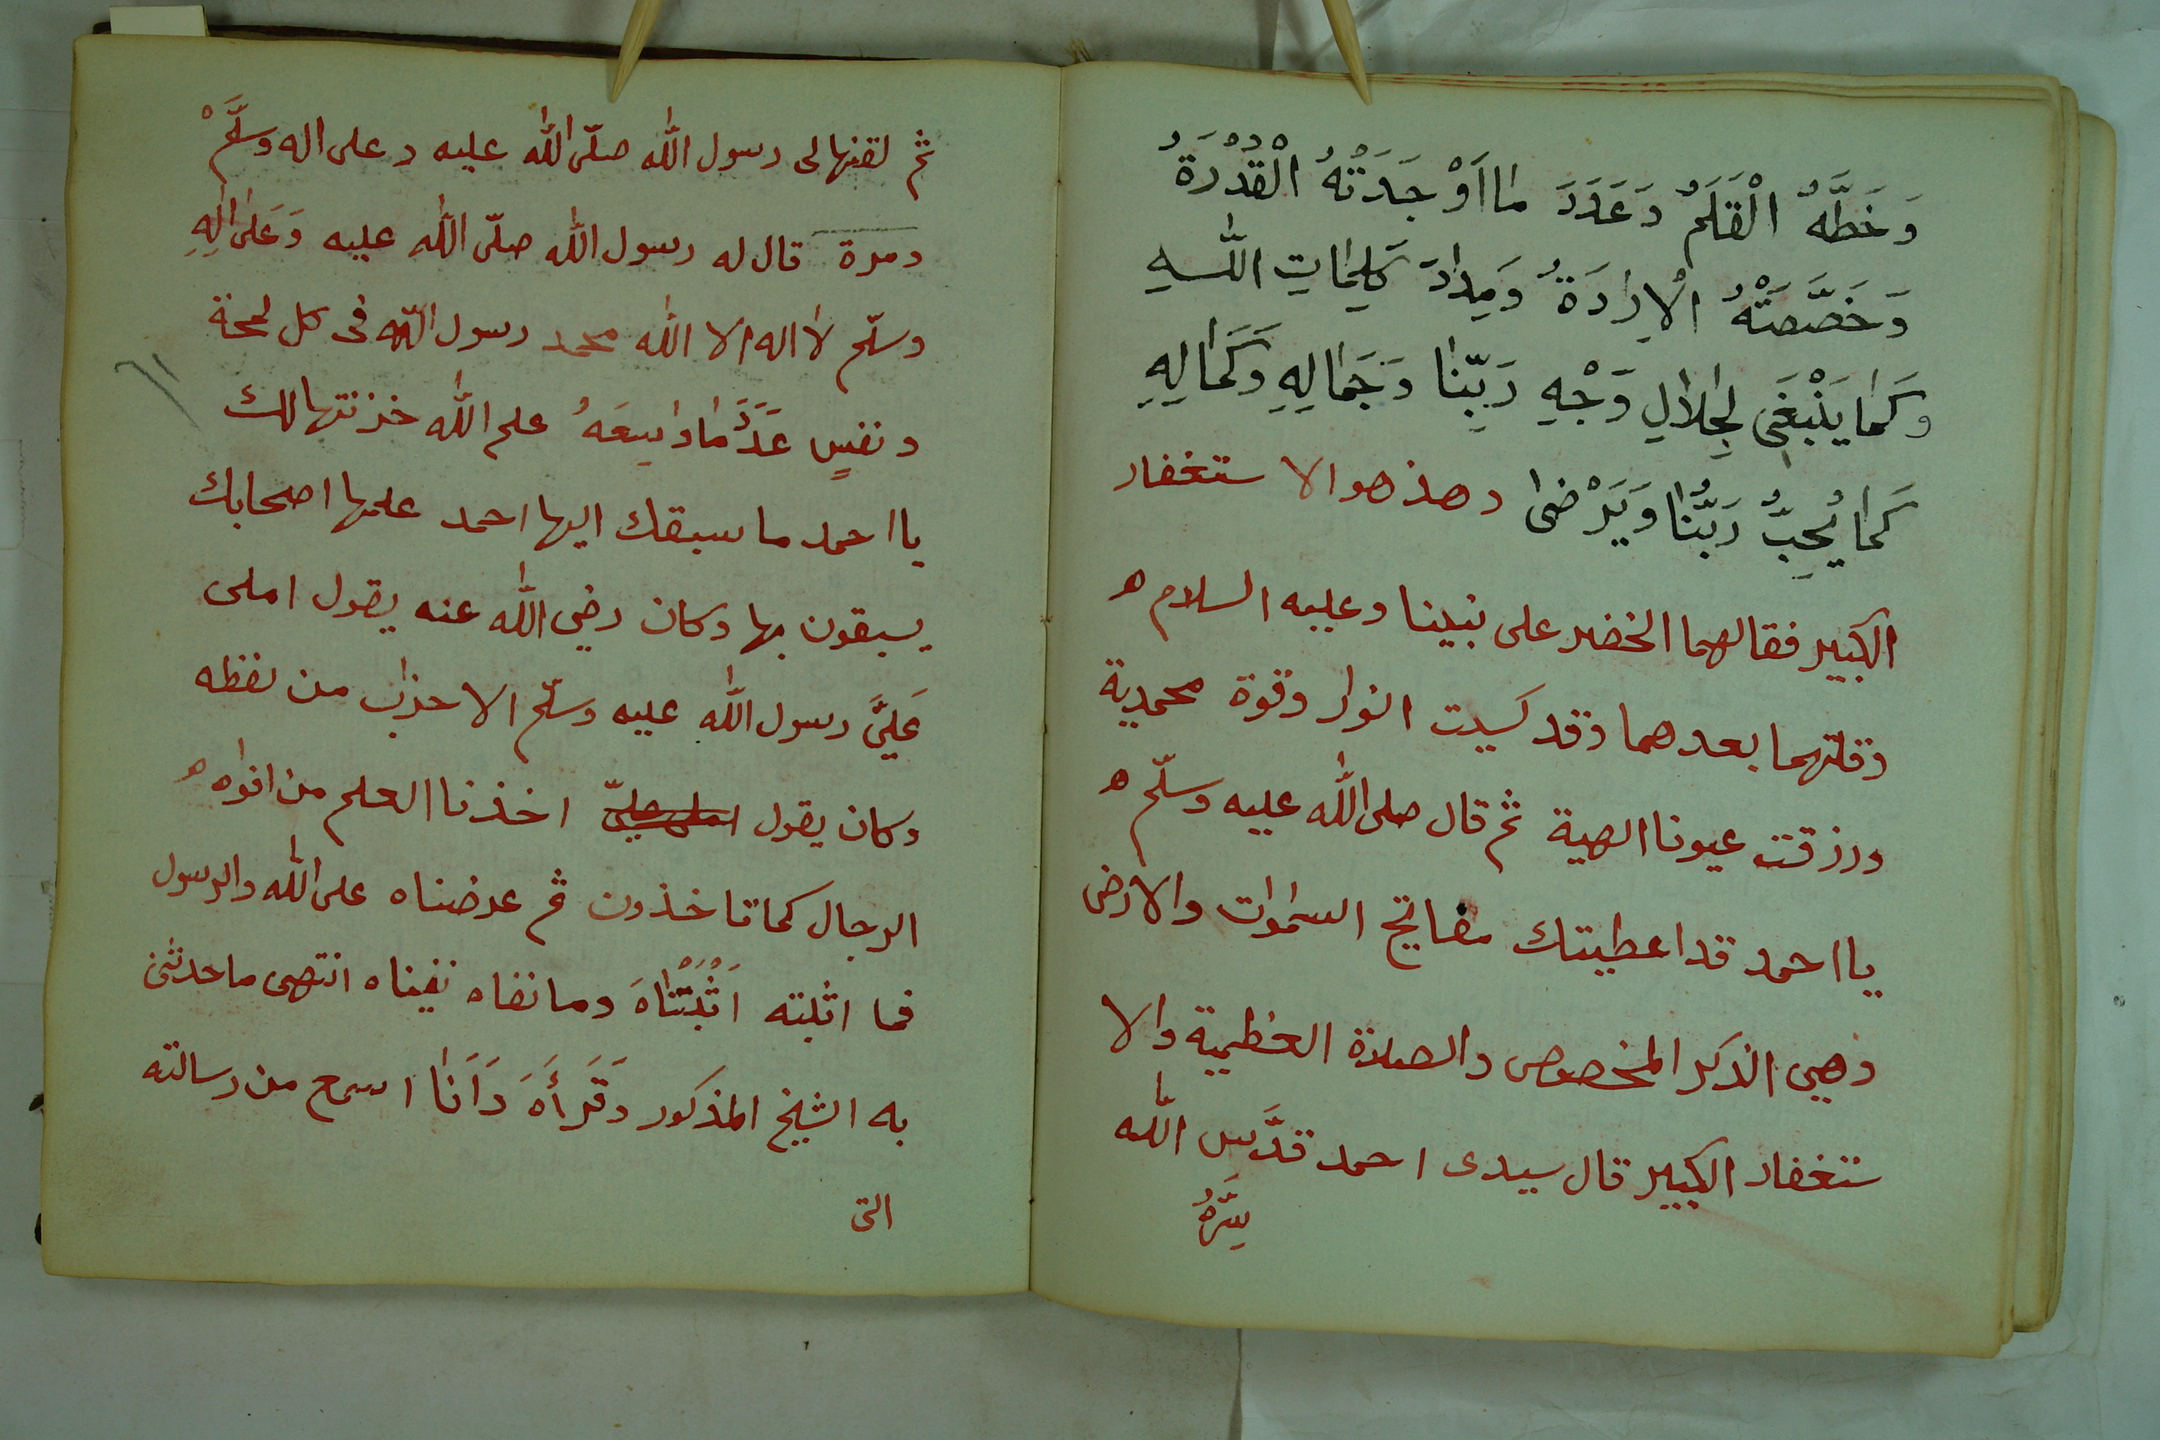 وَخَطَّهُ الْقَلَمُ وَعَدَدَ مٰا اَوْجَدَتْهُ الْقُدْرَةُ
وَخَصَّصَتْهُ الْاِرٰادَةُ وَمِدٰادَ كَلِمٰاتِ اللّٰهِ
وَكَمٰا يَنْبَغٖى لِجَلٰالِ وَجْهِ رَبِّنٰا وَجَمٰالِهِ وَكَمٰالِهِ
كَمٰا يُحِبُّ رَبُّنٰا وَيَرْضٰى وهذ هو الاستغفار
الكبير فقالهما الخضر على نبينا وعليه السلام ه
وقلتهما بعدهما وقد كسيت انوار وقوة محمدية
ورزقت عيونا الهية ثم قال صلى اللّٰه عليه وسلّم ه
يا احمد قد اعطيتك مفاتيح السمٰوٰات والارض
وهى الذكر المخصوص والصلاة العظيمة والا
ستغفار الكبير قال سيدى احمد قدَّس اللّٰه
سِرَّهُ
ثم لقنها لى رسول اللّٰه صلّى اللّٰه عليه وعلى اله وسلَّمْ
ومرة قال له رسول اللّٰه صلّى اللّٰه عليه وَعَلٰى اٰلِهِ
وسلّم لا اله الا اللّٰه محمد رسول اللّٰه فى كل لمحة
ونفسٍ عَدَدَ مٰا وٰسِعَهُ علم اللّٰه خزنتها لك
يا احمد ما سبقك اليها احمد علمها اصحابك
يسبقون بها وكان رضي اللّٰه عنه يقول املى
عَلَيَّ رسول اللّٰه عليه وسلّم الاحزٰب من لفظه
وكان يقول املى عليّ اخذنا العلم من افوٰاه ه
الرجال كما تاخذون ثم عرضناه على اللّٰه والرسول
فما اثبته اَثْبَتْنٰاهَ وما نفاه نفيناه انتهى ما حدثنى
به الشيخ المذكور وَقَرَأَهَ وَاَنٰا اسمع من رسالته
التى